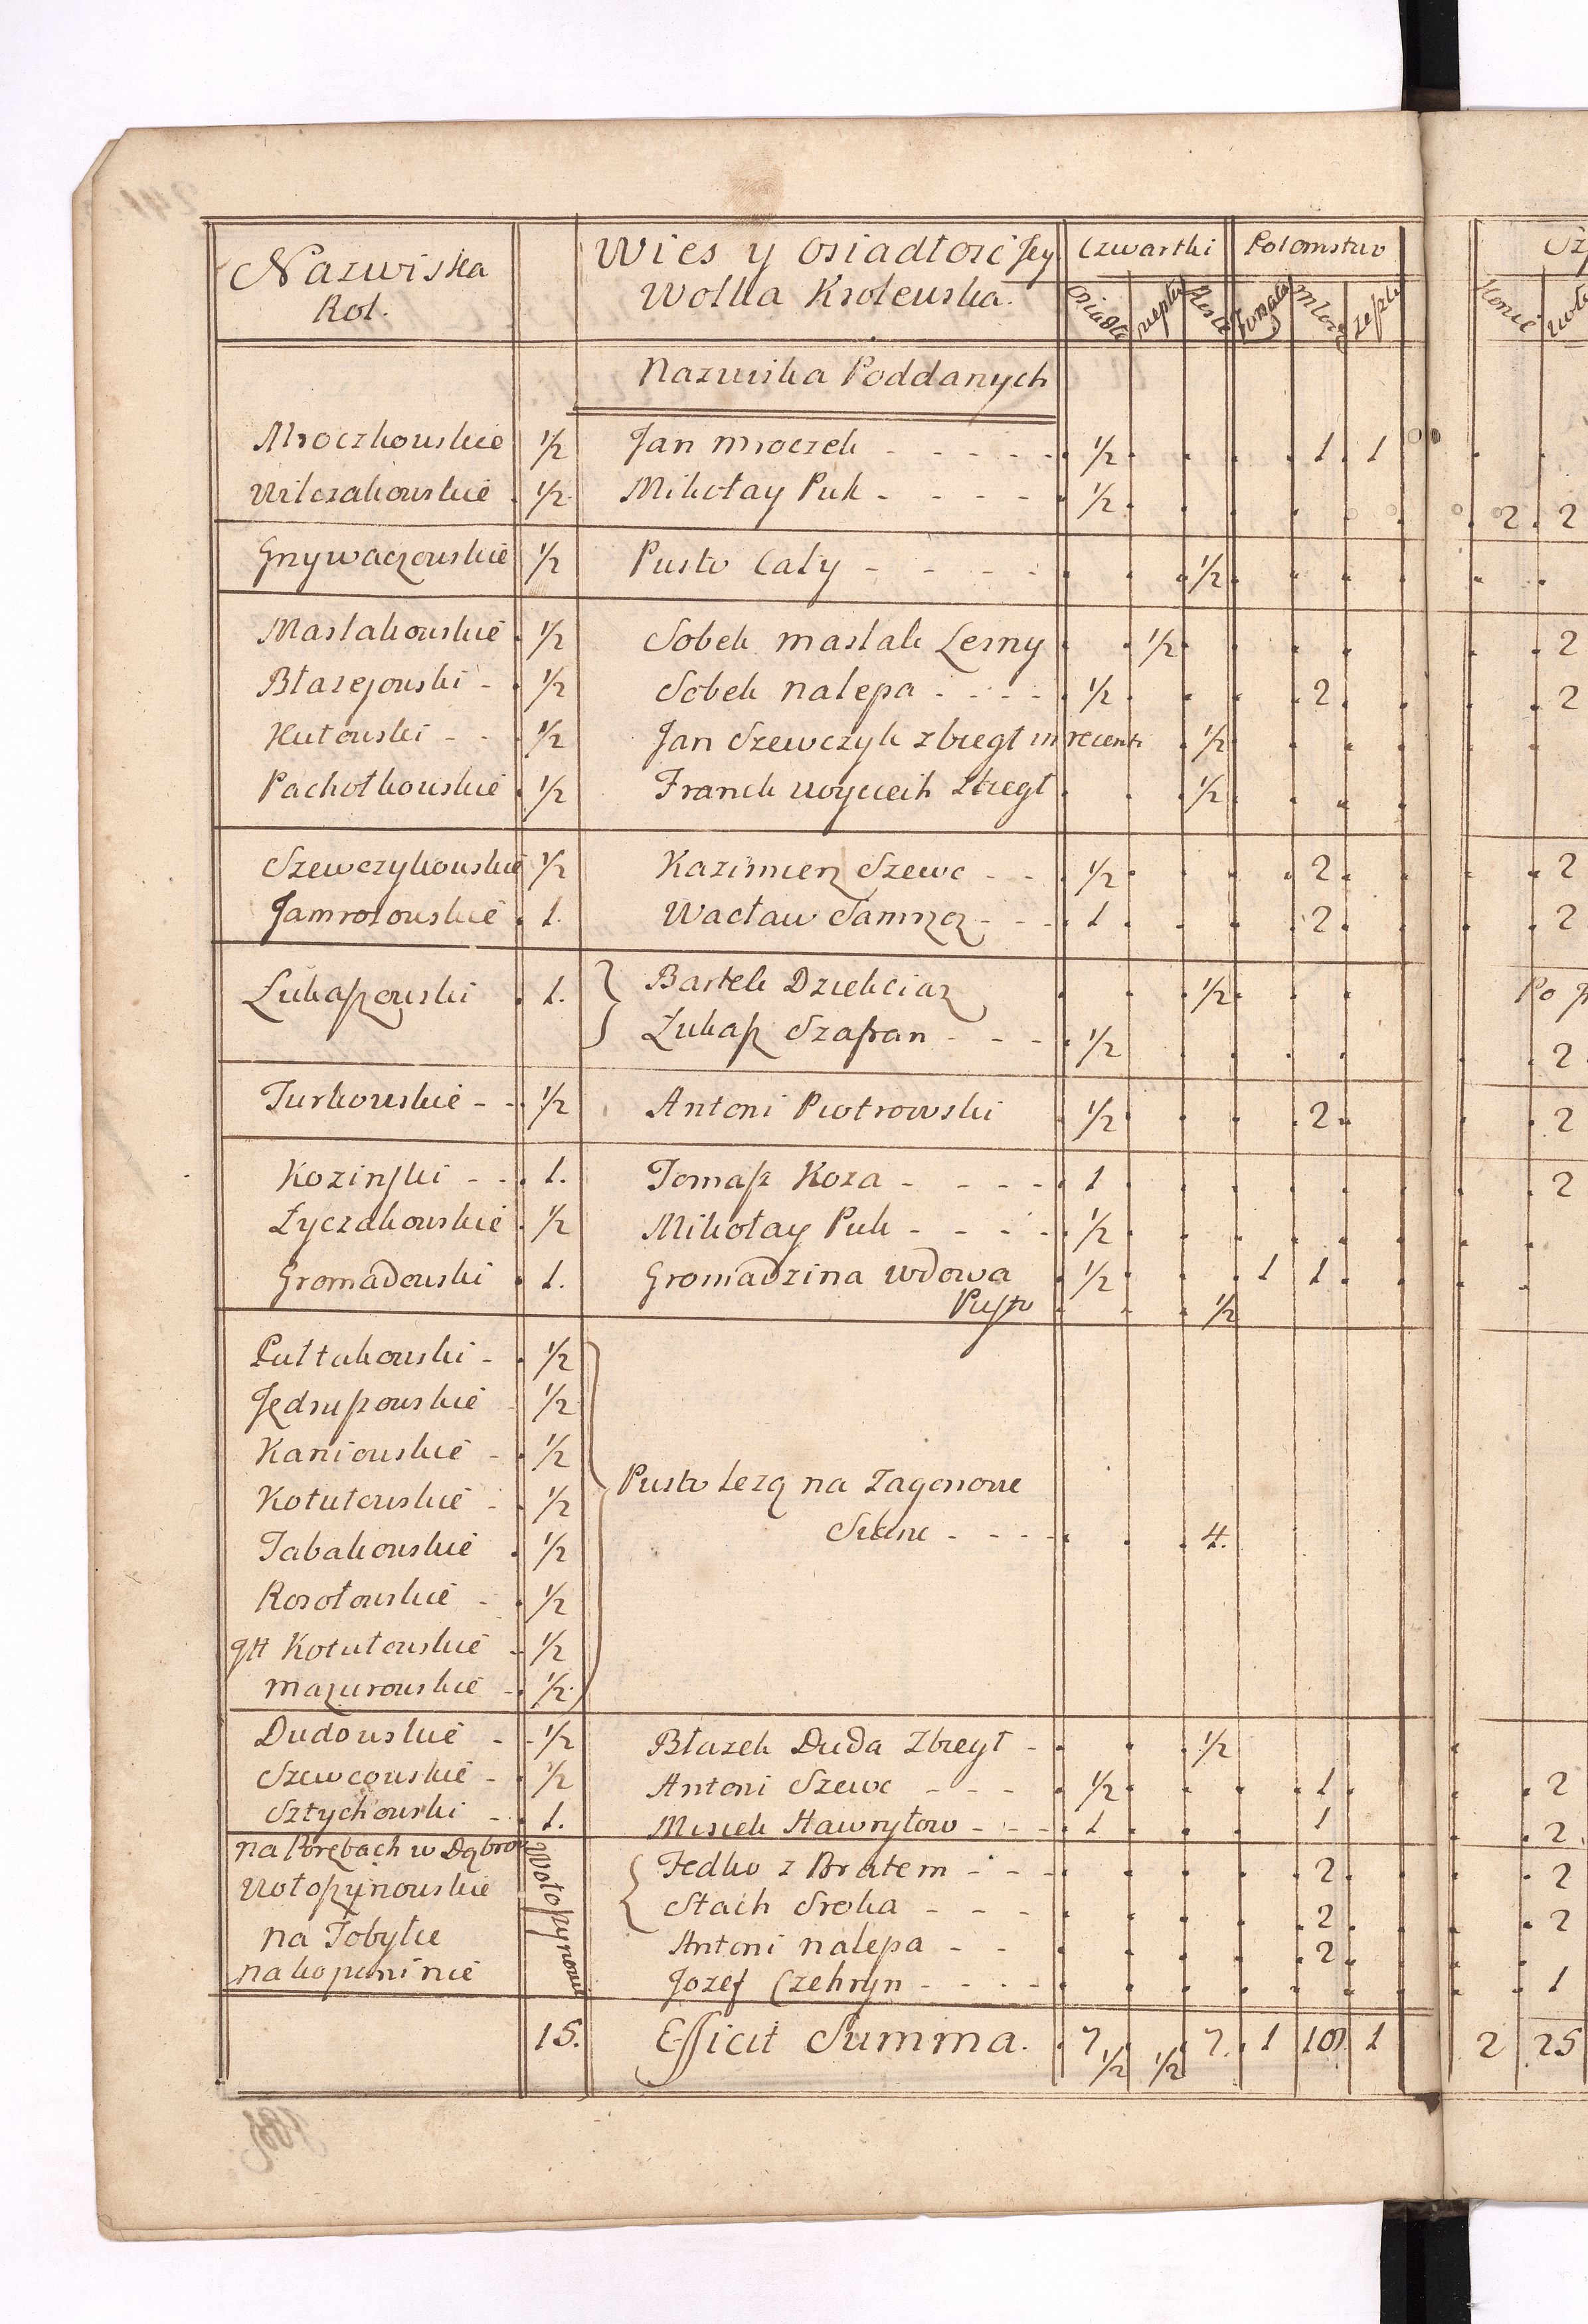 Nazwiska Rol. Wies y Osiadłosc Jey Czwartki Potomstwo
Wolka Krolewska.
Nazwiska Poddanych
Mroczkowskie ½ Jan Mroczek ½ 1 1
Wilczakowskie ½ Mikołay Puk ½ 2 2
Grzywaczowskie ½ Pusto Cały ½
Maslakowskie ½ Sobek Maslak Lesny ½ 2
Błazejowski ½ Sobek Nalepa ½ 2 2
Kutowski ½ Jan Szewczyk zbiegł in recenti ½
Pachołkowskie ½ Franek Woyciech Zbiegł ½
Szewczykowskie ½ Kazimierz Szewc ½ 2 2
Jamrozowskie 1. Wacław Jamroz 1 2 2
Łukaszowski 1. Bartek Dziekciarz ½ Po
Łukasz Szafran ½ 2
Turkowskie ½ Antoni Piotrowski ½ 2 2
Kozinski 1. Tomasz Koza 1 2
Łyczakowskie ½ Mikołay Puk ½
Gromadowski 1. Gromadzina wdowa ½ 1 1
Pusto ½
Pułtakowski ½
Jędruszowskie ½
Kaniowskie ½
Kotutowskie ½ Pusto lezą na Zagonowe
Tabakowskie ½ Sianie 4.
Rosołowskie ½
Kotutowskie ½
Mazurowskie ½
Dudowskie ½ Błazek Duda Zbiegł ½
Szewcowskie ½ Antoni Szewc ½ 1 2
Sztychowski 1. Misiek Hawryłow 1 1 2
Na Porębach w Dąbro Fedko z Bratem 2 2
Wołoszynowskie Wołoszynowie Stach Sroka 2 2
Na Tobyłce Antoni Nalepa 2
Na kopaninie Jozef Czehryn 1
15. Efficit Summa. 7½ ½ 7. 1 18 1 2 25